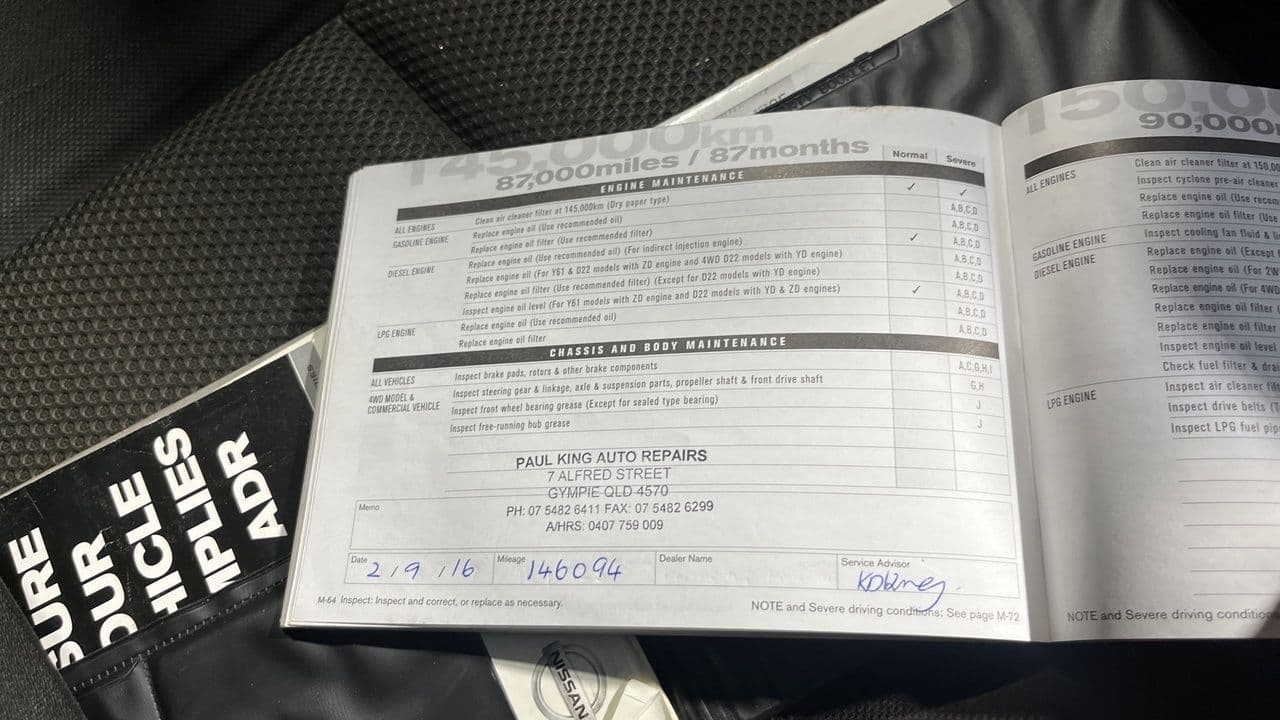 145,000km
87,000miles / 87months
Normal Severe
ENGINE MAINTENANCE
ALL ENGINES Clean air cleaner filter at 145,000km (Dry paper type) ✓ ✓
GASOLINE ENGINE Replace engine oil (Use recommended oil) A,B,C,D
Replace engine oil filter (Use recommended filter) A,B,C,D
DIESEL ENGINE Replace engine oil (Use recommended oil) (For indirect injection engine) ✓ A,B,C,D
Replace engine oil (For Y61 & D22 models with ZD engine and 4WD D22 models with YD engine) A,B,C,D
Replace engine oil filter (Use recommended filter) (Except for D22 models with YD engine) A,B,C,D
Inspect engine oil level (For Y61 models with ZD engine and D22 models with YD & ZD engines) ✓ A,B,C,D
LPG ENGINE Replace engine oil (Use recommended oil) A,B,C,D
Replace engine oil filter A,B,C,D
CHASSIS AND BODY MAINTENANCE
ALL VEHICLES Inspect brake pads, rotors & other brake components A,C,G,H,I
4WD MODEL & COMMERCIAL VEHICLE Inspect steering gear & linkage, axle & suspension parts, propeller shaft & front drive shaft G,H
Inspect front wheel bearing grease (Except for sealed type bearing) J
Inspect free-running hub grease J
PAUL KING AUTO REPAIRS
7 ALFRED STREET
GYMPIE QLD 4570
PH: 07 5482 6411 FAX: 07 5482 6299
A/HRS: 0407 759 009
Memo
Date 2/9/16 Mileage 146094 Dealer Name Service Advisor
M-64 Inspect: Inspect and correct, or replace as necessary. NOTE and Severe driving conditions: See page M-72
150,0
90,000
ALL ENGINES Clean air cleaner filter at 150,00
Inspect cyclone pre-air cleaner
Replace engine oil (Use recom
Replace engine oil filter (Use
GASOLINE ENGINE Inspect cooling fan fluid & li
DIESEL ENGINE Replace engine oil (Except
Replace engine oil (For 2W
Replace engine oil (For 4WD
Replace engine oil filter
Replace engine oil filter
Inspect engine oil level
Check fuel filter & drai
LPG ENGINE Inspect air cleaner fil
Inspect drive belts (
Inspect LPG fuel pip
NOTE and Severe driving condition
SURE
OUR
HICLE
MPLIES
ADR
NISSAN